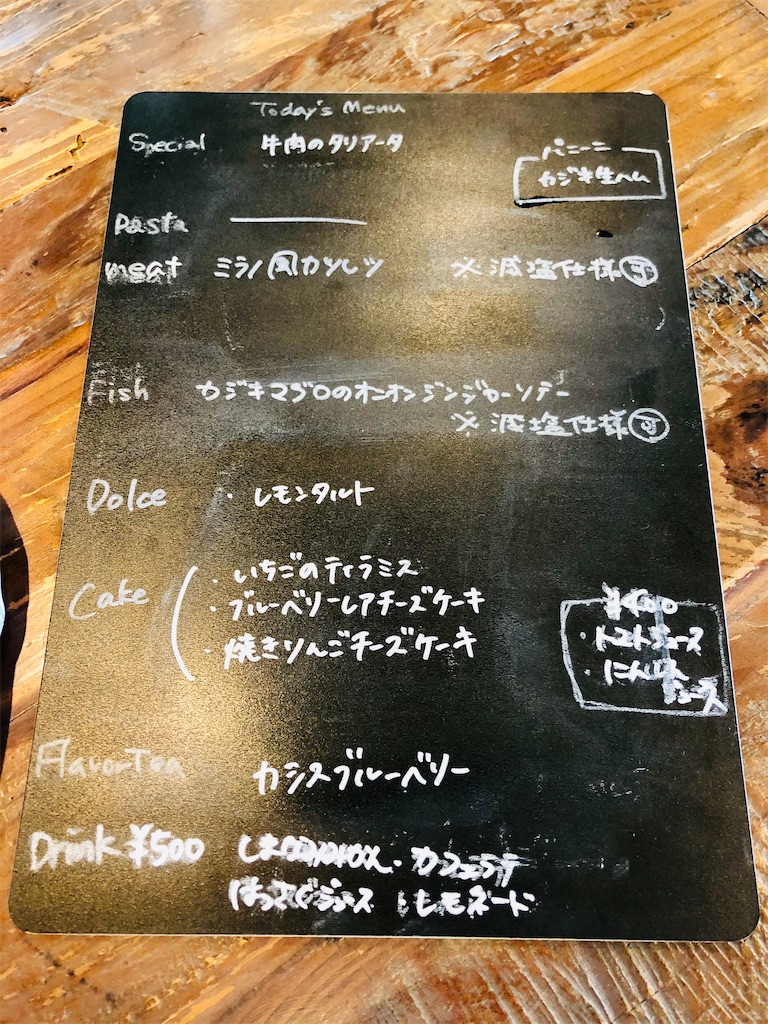 Today's Menu
Special 牛肉のタリアータ
パニーニ
カジキ生ハム
Pasta
meat ミラノ風カツレツ ※減塩仕様可
Fish カジキマグロのオニオンジンジャーソテー
※減塩仕様可
Dolce ・レモンタルト
Cake ・いちごのティラミス
・ブルーベリーレアチーズケーキ
・焼きりんごチーズケーキ
・トマトジュース
・にんじん
ジュース
FlavorTea カシスブルーベリー
Drink ¥500 ・カフェラテ
はっさくジュース レモネード